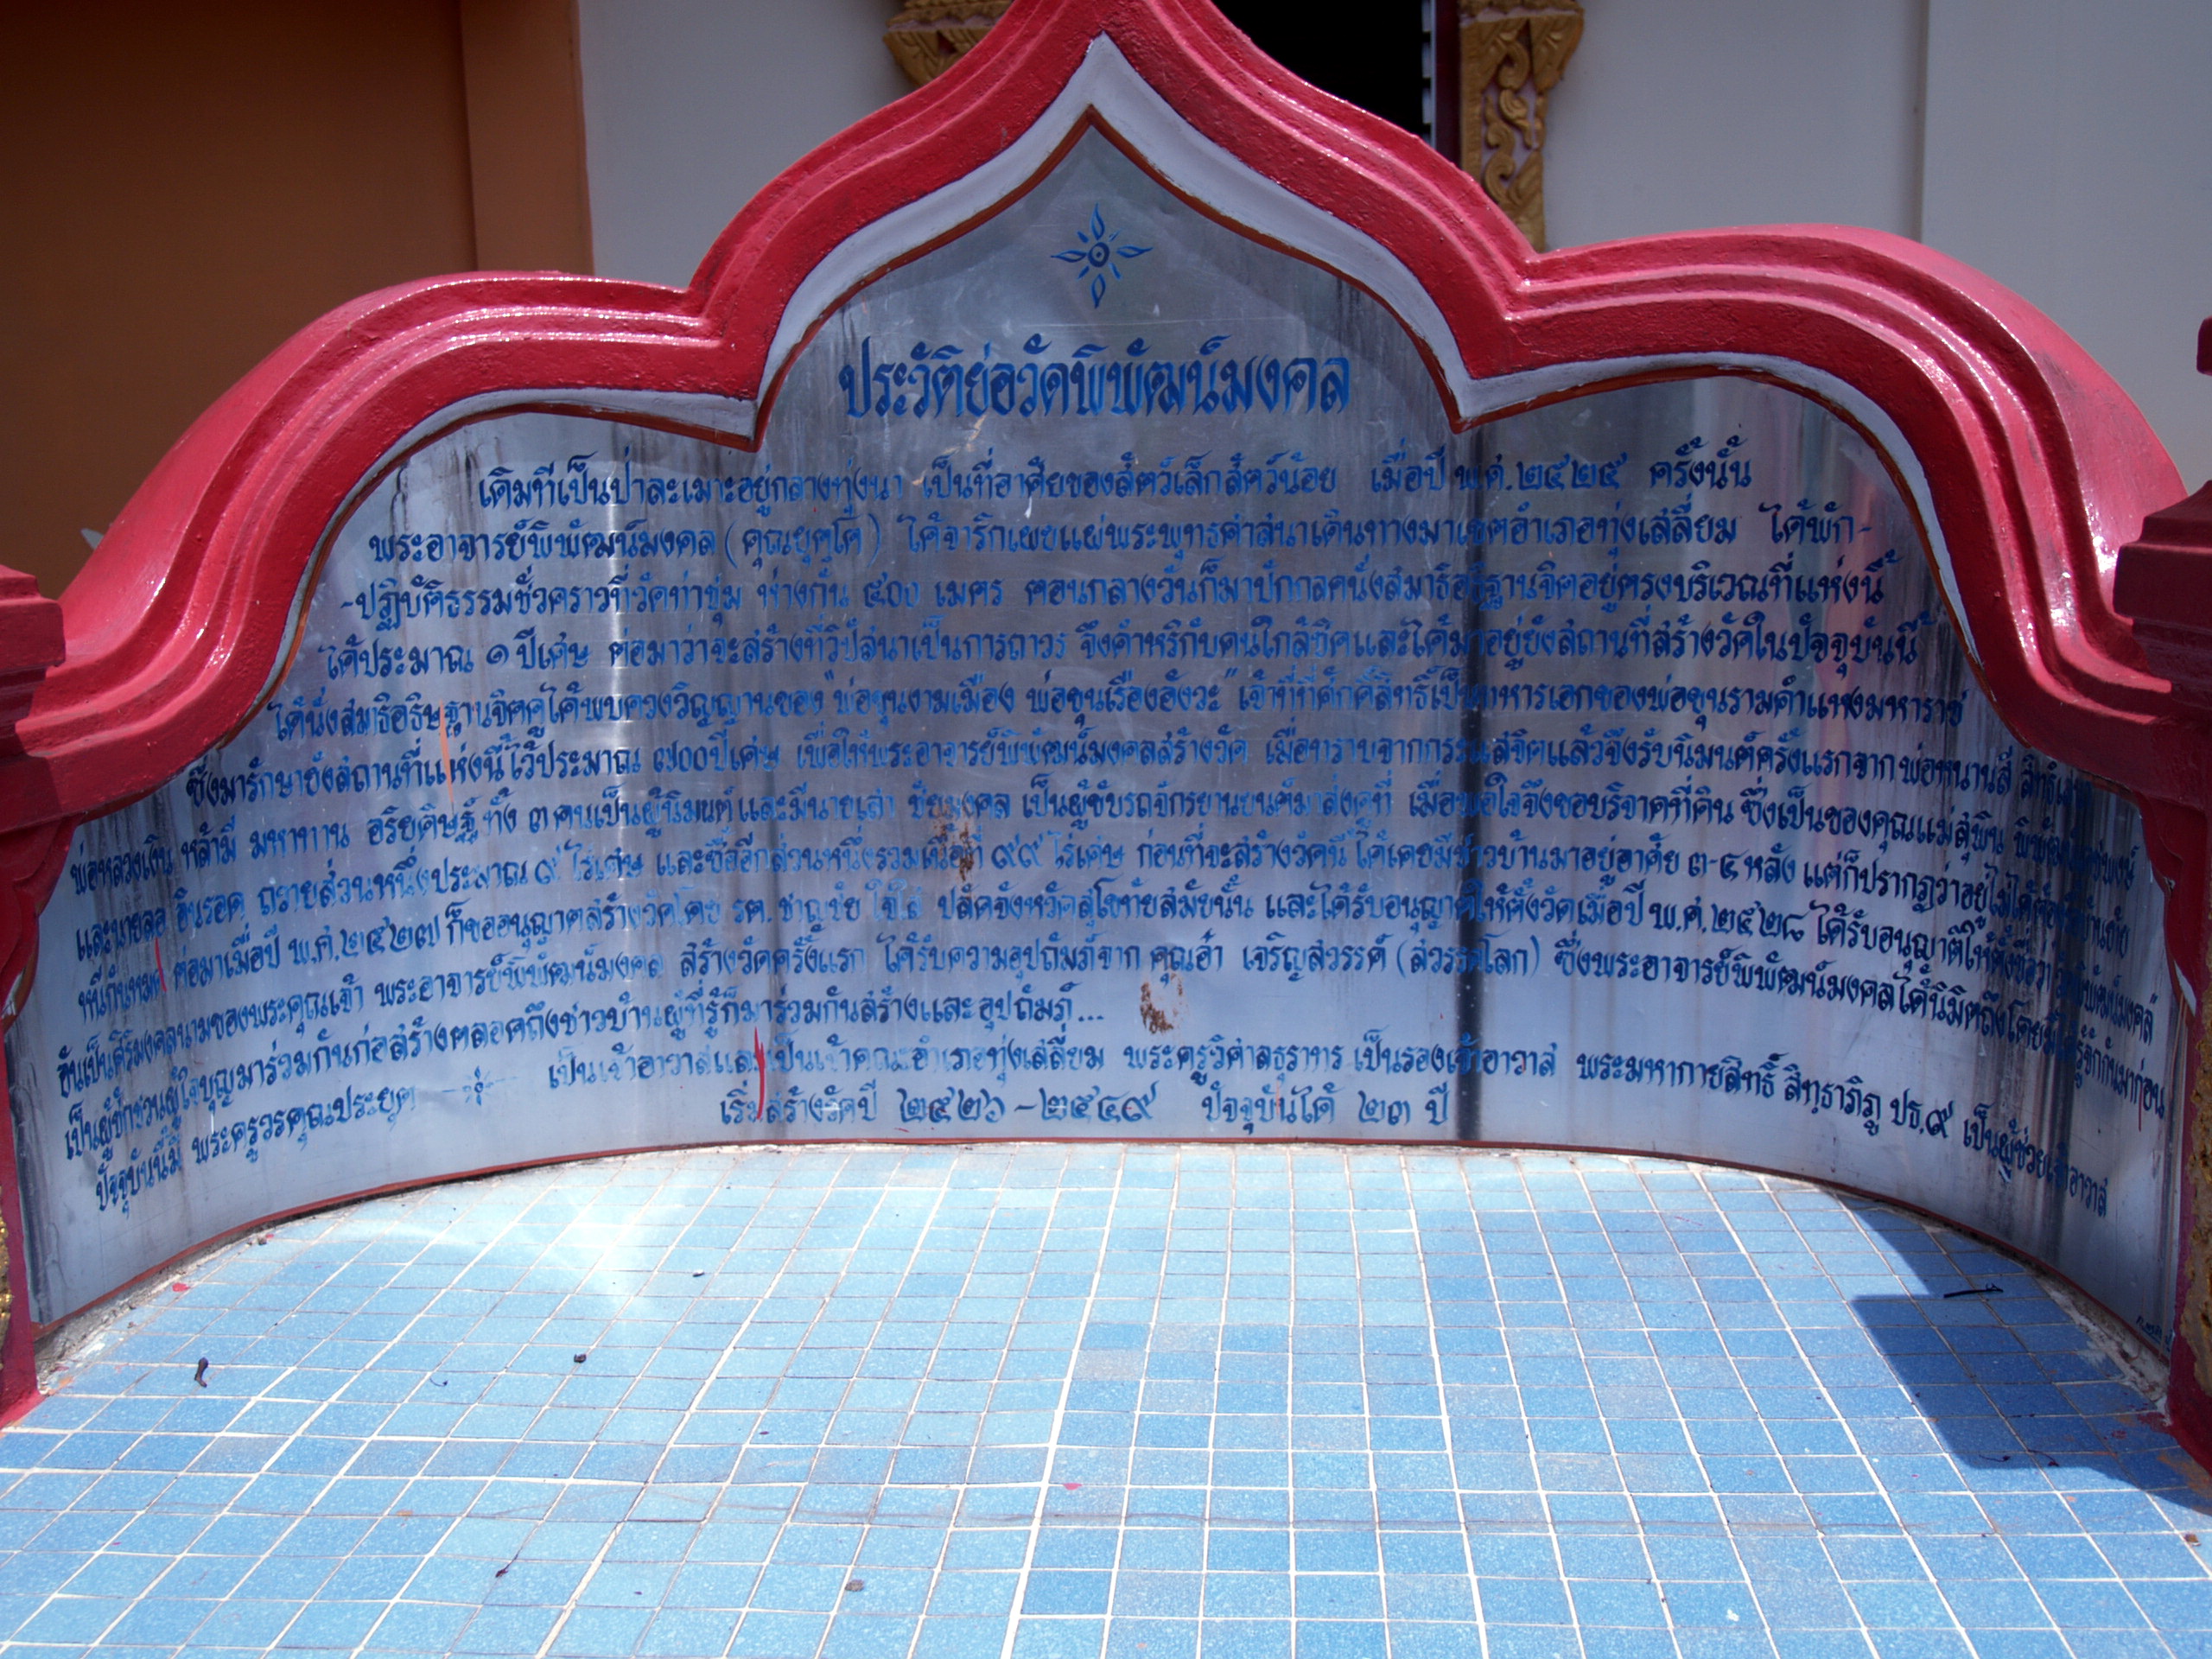 ประวัติย่อวัดพิพัฒน์มงคล
เดิมทีเป็นป่าละเมาะอยู่กลางทุ่งนา เป็นที่อาศัยของสัตว์เล็กสัตว์น้อย เมื่อปี พ.ศ.๒๕๒๕ ครั้งนั้น
พระอาจารย์พิพัฒน์มงคล (คุณยุตฺโต) ได้จาริกเผยแผ่พระพุทธศาสนาเดินทางมาเขตอำเภอทุ่งเสลี่ยม ได้พัก-
-ปฏิบัติธรรมชั่วคราวที่วัดท่าชุม ห่างกัน ๕๐๐ เมตร ตอนกลางวันก็มาปักกลดนั่งสมาธิอธิฐานจิตอยู่ตรงบริเวณที่แห่งนี้
ได้ประมาณ ๑ ปีเศษ ต่อมาว่าจะสร้างที่วิปัสนาเป็นการถาวร จึงดำหริกับคนใกล้ชิดและได้มาอยู่ยังสถานที่สร้างวัดในปัจจุบันนี้
ได้นั่งสมาธิอธิษฐานจิตดูได้พบดวงวิญญานของ "พ่อขุนงามเมือง พ่อขุนเรืองอังวะ" เจ้าที่ที่ศักดิ์สิทธิ์เป็นทหารเอกของพ่อขุนรามคำแหงมหาราช
ซึ่งมารักษายังสถานที่แห่งนี้ไว้ประมาณ ๗๐๐ปีเศษ เพื่อให้พระอาจารย์พิพัฒน์มงคลสร้างวัด เมื่อทราบจากกระแสจิตแล้วจึงรับนิมนต์ครั้งแรกจาก พ่อหนานสี
พ่อหลวงเงิน หล้ามี มหาทาน อริยศิษฐ์ ทั้ง ๓ คนเป็นผู้นิมนต์ และมีนายเสา ชัยมงคล เป็นผู้ขับรถจักรยานยนต์มาส่งดูที่ เมื่อพอใจจึงขอบริจาคที่ดิน ซึ่งเป็นของคุณแม่สุพิน
และนายลอ อินรอด ถวายส่วนหนึ่งประมาณ ๙ ไร่เศษ และซื้ออีกส่วนหนึ่งรวมเนื้อที่ ๙๙ ไร่เศษ ก่อนที่จะสร้างวัดนี้ ได้เคยมีชาวบ้านมาอยู่อาศัย ๓-๔ หลัง แต่ก็ปรากฏว่าอยู่ไม่ได้ต้อง
หนีกันหมด ต่อมาเมื่อปี พ.ศ.๒๕๒๗ ก็ขออนุญาตสร้างวัดโดย รต. ชาญชัย ใจใส่ ปลัดจังหวัดสุโขทัยสมัยนั้น และได้รับอนุญาตให้ตั้งวัดเมื่อปี พ.ศ.๒๕๒๘ ได้รับอนุญาติให้ตั้งชื่อว่า วัดพิพัฒน์มงคล"
อันเป็นสิริมงคลนามของพระคุณเจ้า พระอาจารย์พิพัฒน์มงคล สร้างวัดครั้งแรก ได้รับความอุปถัมภ์จาก คุณอ่ำ เจริญสวรรค์ (สวรรคโลก) ซึ่งพระอาจารย์พิพัฒน์มงคลได้นิมิตถึงโดยมิได้รู้จักกันมาก่อน
เป็นผู้ชักชวนผู้ใจบุญมาร่วมกันก่อสร้างตลอดถึงชาวบ้านผู้ที่รู้ก็มาร่วมกันสร้างและอุปถัมภ์...
ปัจจุบันนี้มี พระครูวรคุณประยุต เป็นเจ้าอาวาสและเป็นเจ้าคณะอำเภอทุ่งเสลี่ยม พระครูวิศาลธุราทร เป็นรองเจ้าอาวาส พระมหากายสิทธิ์ สิทฺธาภิภู ปธ.๙ เป็นผู้ช่วยเจ้าอาวาส
เริ่มสร้างวัดปี ๒๕๒๖ - ๒๕๔๙ ปัจจุบันได้ ๒๓ ปี